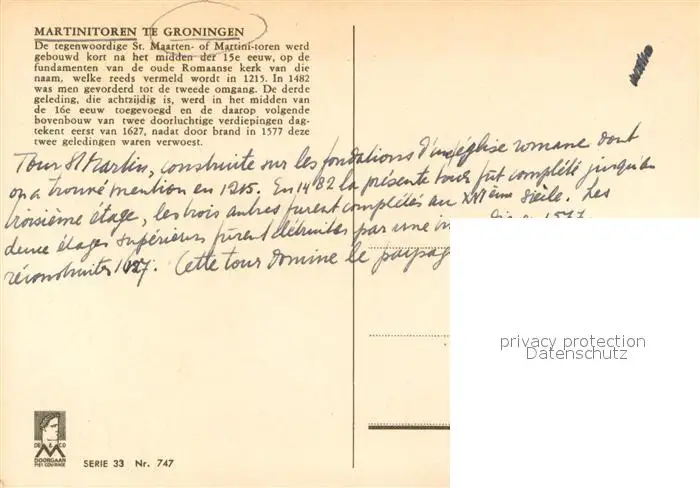 MARTINITOREN TE GRONINGEN
De tegenwoordige St. Maarten- of Martini-toren werd
gebouwd kort na het midden der 15e eeuw, op de
fundamenten van de oude Romaanse kerk van die
naam, welke reeds vermeld wordt in 1215. In 1482
was men gevorderd tot de tweede omgang. De derde
geleding, die achtzijdig is, werd in het midden van
de 16e eeuw toegevoegd en de daarop volgende
bovenbouw van twee doorluchtige verdiepingen dag-
tekent eerst van 1627, nadat door brand in 1577 deze
twee geledingen waren verwoest.
Tour St Martin, construite sur les fondations d'une église romane dont
on a trouvé mention en 1215. En 1482 la présente tour fut complété jusqu'au
troisième étage, les trois autres furent complétés au XVIème siècle. Les
deux étages supérieurs fûrent détruites par une 1577
réconstruites 1627. Cette tour domine le paysag
privacy protection
Datenschutz
DE & CO
M
DOORGAAN
MET GOURAGE
SERIE 33 Nr. 747